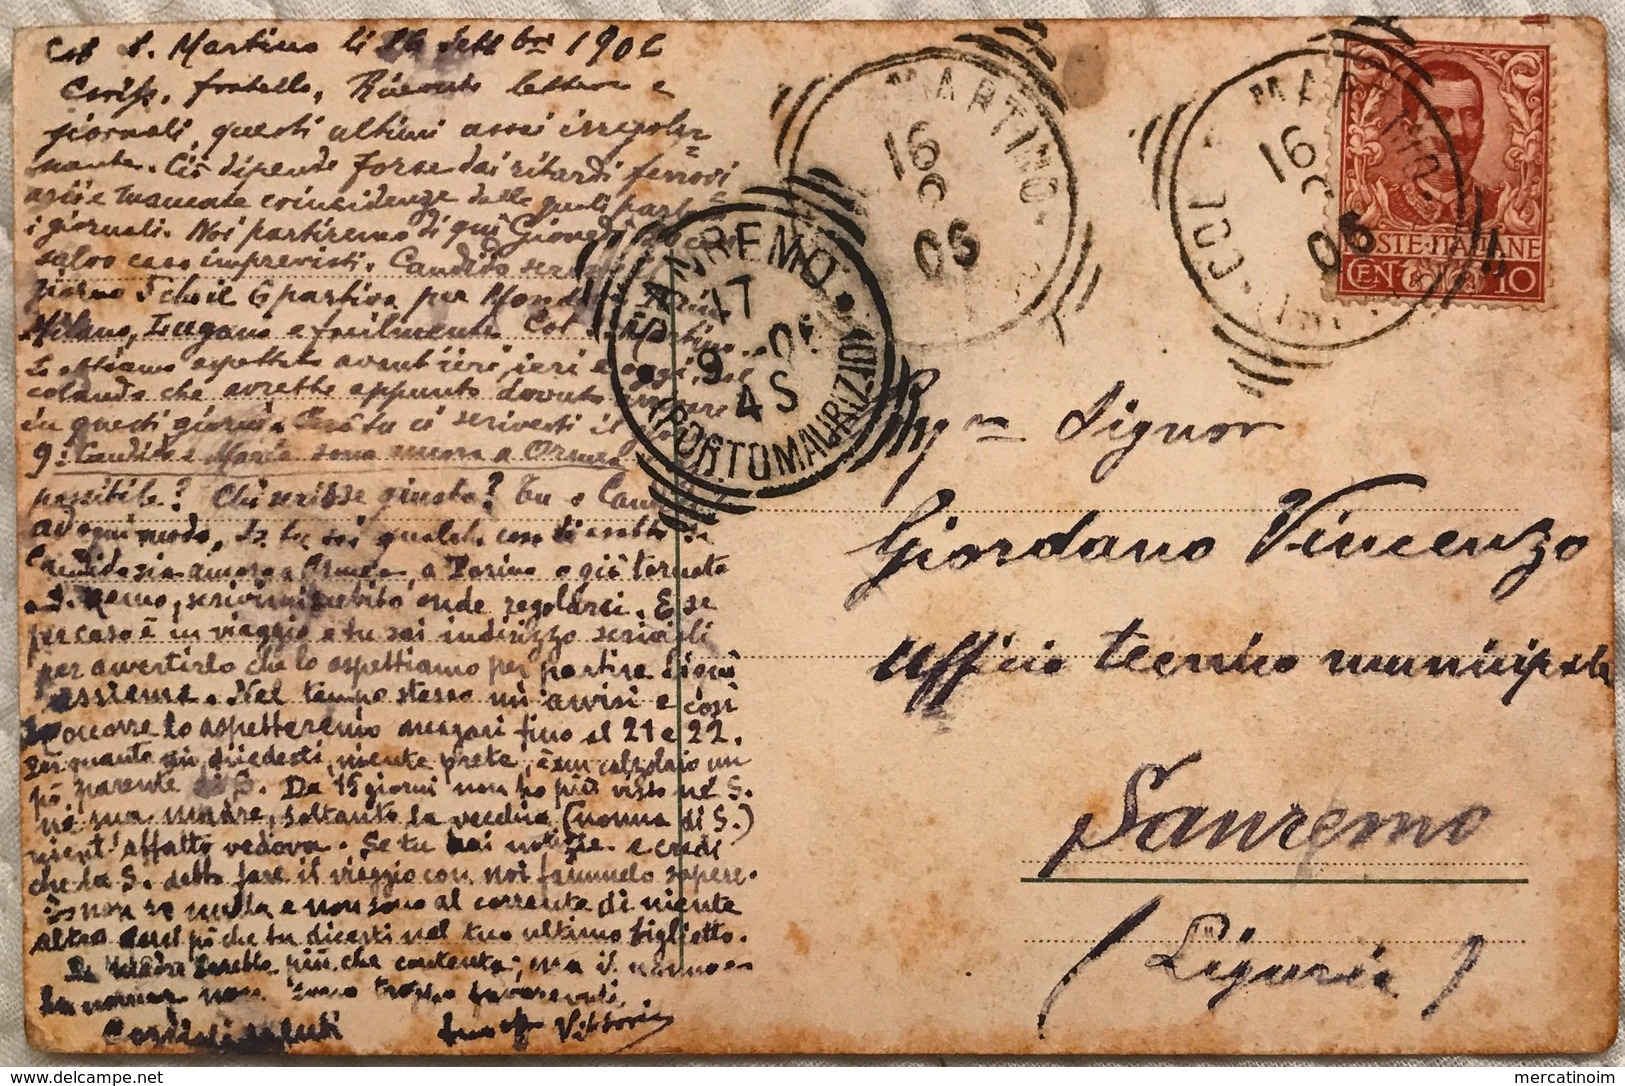 Col S. Martino li 16 Settbre 1906
Cariss. fratello, Ricevute lettere e
giornali, questi ultimi assai irregolar=
mente. Ciò dipende forse dai ritardi ferrovi
arii e mancate coincidenze delle quali
i giornali. Noi partiremo di qui Giovedì
salvo casi imprevisti. Candido
giorno 5 che il 6 partiva per Mondovì, Torino
Milano, Lugano e facilmente Col S. Martino.
Lo abbiamo aspettato avant'ieri, ieri e oggi,
colando che avrebbe appunto dovuto arrivare
in questi giorni. tu ci scrivesti il
9: Candido e Maria sono ancora a Ormea
possibile? Chi scrisse giusto? Tu o Candido
ad ogni modo, se tu sai qualche cosa di esatto
Candido sia ancora a Ormea, a Torino o già tornato
a S. Remo, scrivimi subito onde regolarci. E se
per caso è in viaggio e tu sai indirizzo scrivigli
per avvertirlo che lo aspettiamo per partire di qui
assieme. Nel tempo stesso mi avvisi e così
se occorre lo aspetteremo magari fino al 21 e 22.
In quanto mi chiedesti, niente prete, è un calzolaio un
pò parente di S. Da 15 giorni non ho più visto né S.
né sua madre, soltanto la vecchia (nonna di S.)
nient'affatto vedova. Se tu hai notizie e credi
che la S. debba fare il viaggio con noi fammelo sapere.
Io non so nulla e non sono al corrente di niente
altro quel pò che tu dicesti nel tuo ultimo biglietto.
La madre sarebbe più che contenta; ma il nonno e
la nonna non sono troppo favorevoli
Cordiali saluti Vittorio
MARTINO
16
9
06
COL S. MARTINO
16
9
06
SANREMO
17
9 06
4 S
(PORTOMAURIZIO)
POSTE ITALIANE
CENT. 10
Signor
Giordano Vincenzo
Ufficio tecnico municipale
Sanremo
(Liguria)
mercatinoim
delcampe.net